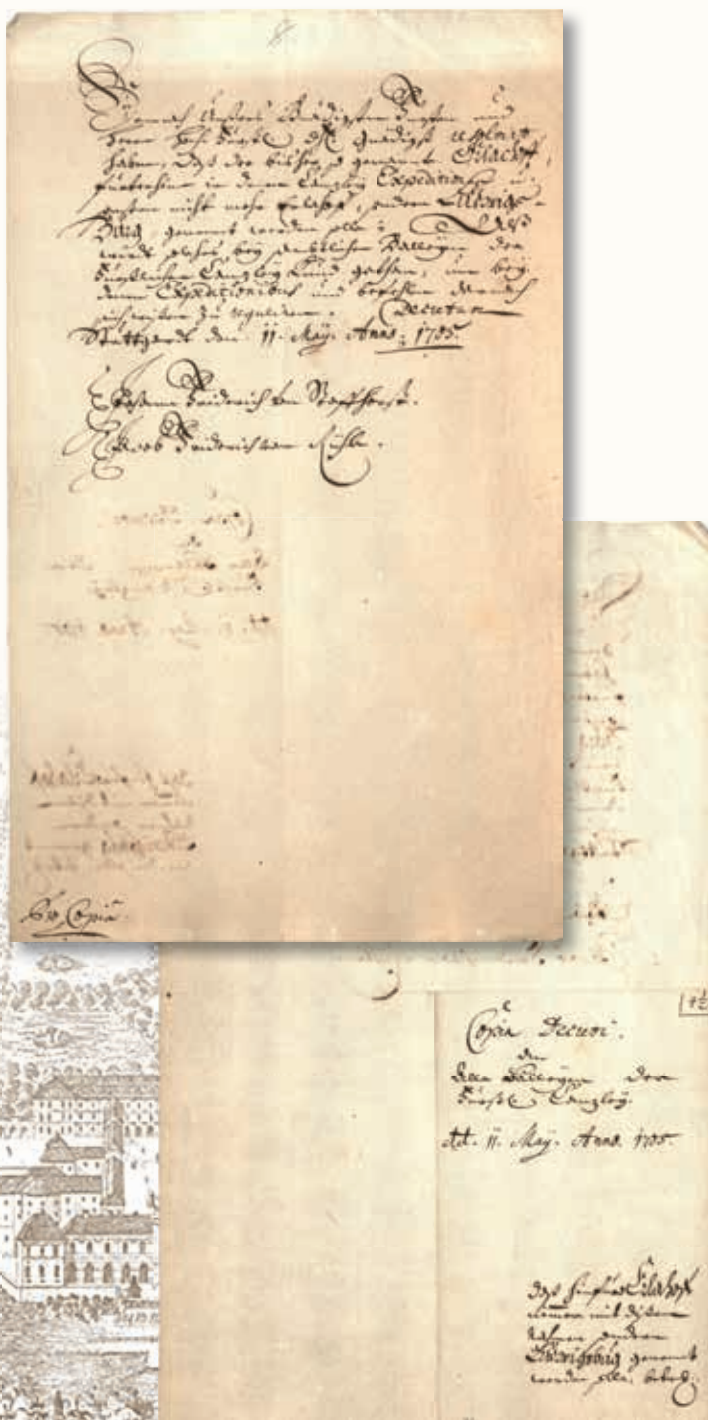 Demnach Unsers Gnädigsten Fürsten und
Herrn Hochfürstl. dhl. gnädigst
haben, daß der bißher so genannte Erlachhoff,
fürterhin in denen Canzley Expeditionen u.
sonsten nicht mehr Erlahof, sondern Ludwigs-
Burg genennt werden solle; Alß
würdt solches, bey sambtlichen Collegien der
Fürstlichen Canzley Kund gethan, umb bey
denen Expeditionibus und befehlen darnach
sich wissen zu reguliren. Decretum
Stuttgardt den 11. May. Anno. 1705.
Johann Friderich von Staffhorst.
Jacob Friderich von Rühle.
Pro Copia.
Copia Decreti.
An
Alle Collegien der
Fürstl. Canzley.
dd. 11. May. Anno. 1705.
daß hinfüro Erlahoff
nimmer mit disem
nahmen sondern
Ludwigsburg genennt
werden solle, betreff.